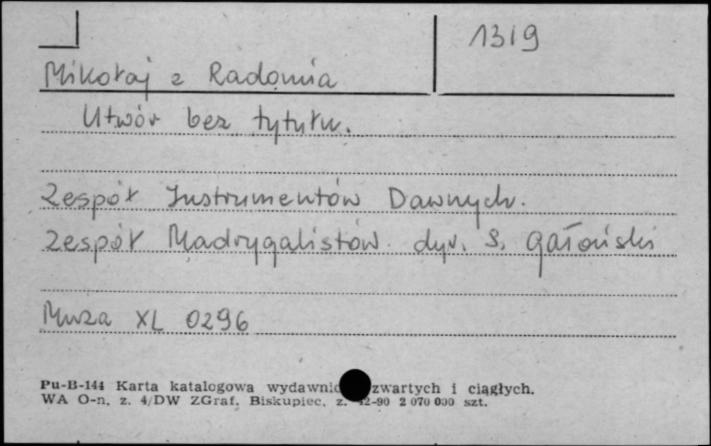 1319
Mikołaj z Radomia
Utwór bez tytułu.
Zespół Instrumentów Dawnych.
Zespół Madrygalistów. dyr. S. Gałoński
Muza XL 0296
Pu-B-144 Karta katalogowa zwartych i ciągłych.
WA O-n. z. 4/DW ZGraf. Biskupiec. z. -90 2 070 000 szt.